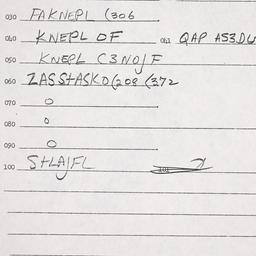 030 FAKNEPL (306
040 KNEPL OF 041 QAP AS3.DU
050 KNEPL C3NO/F
060 ZASSTASKO(208 (372
070 O
080 O
090 O
100 STLAJFL